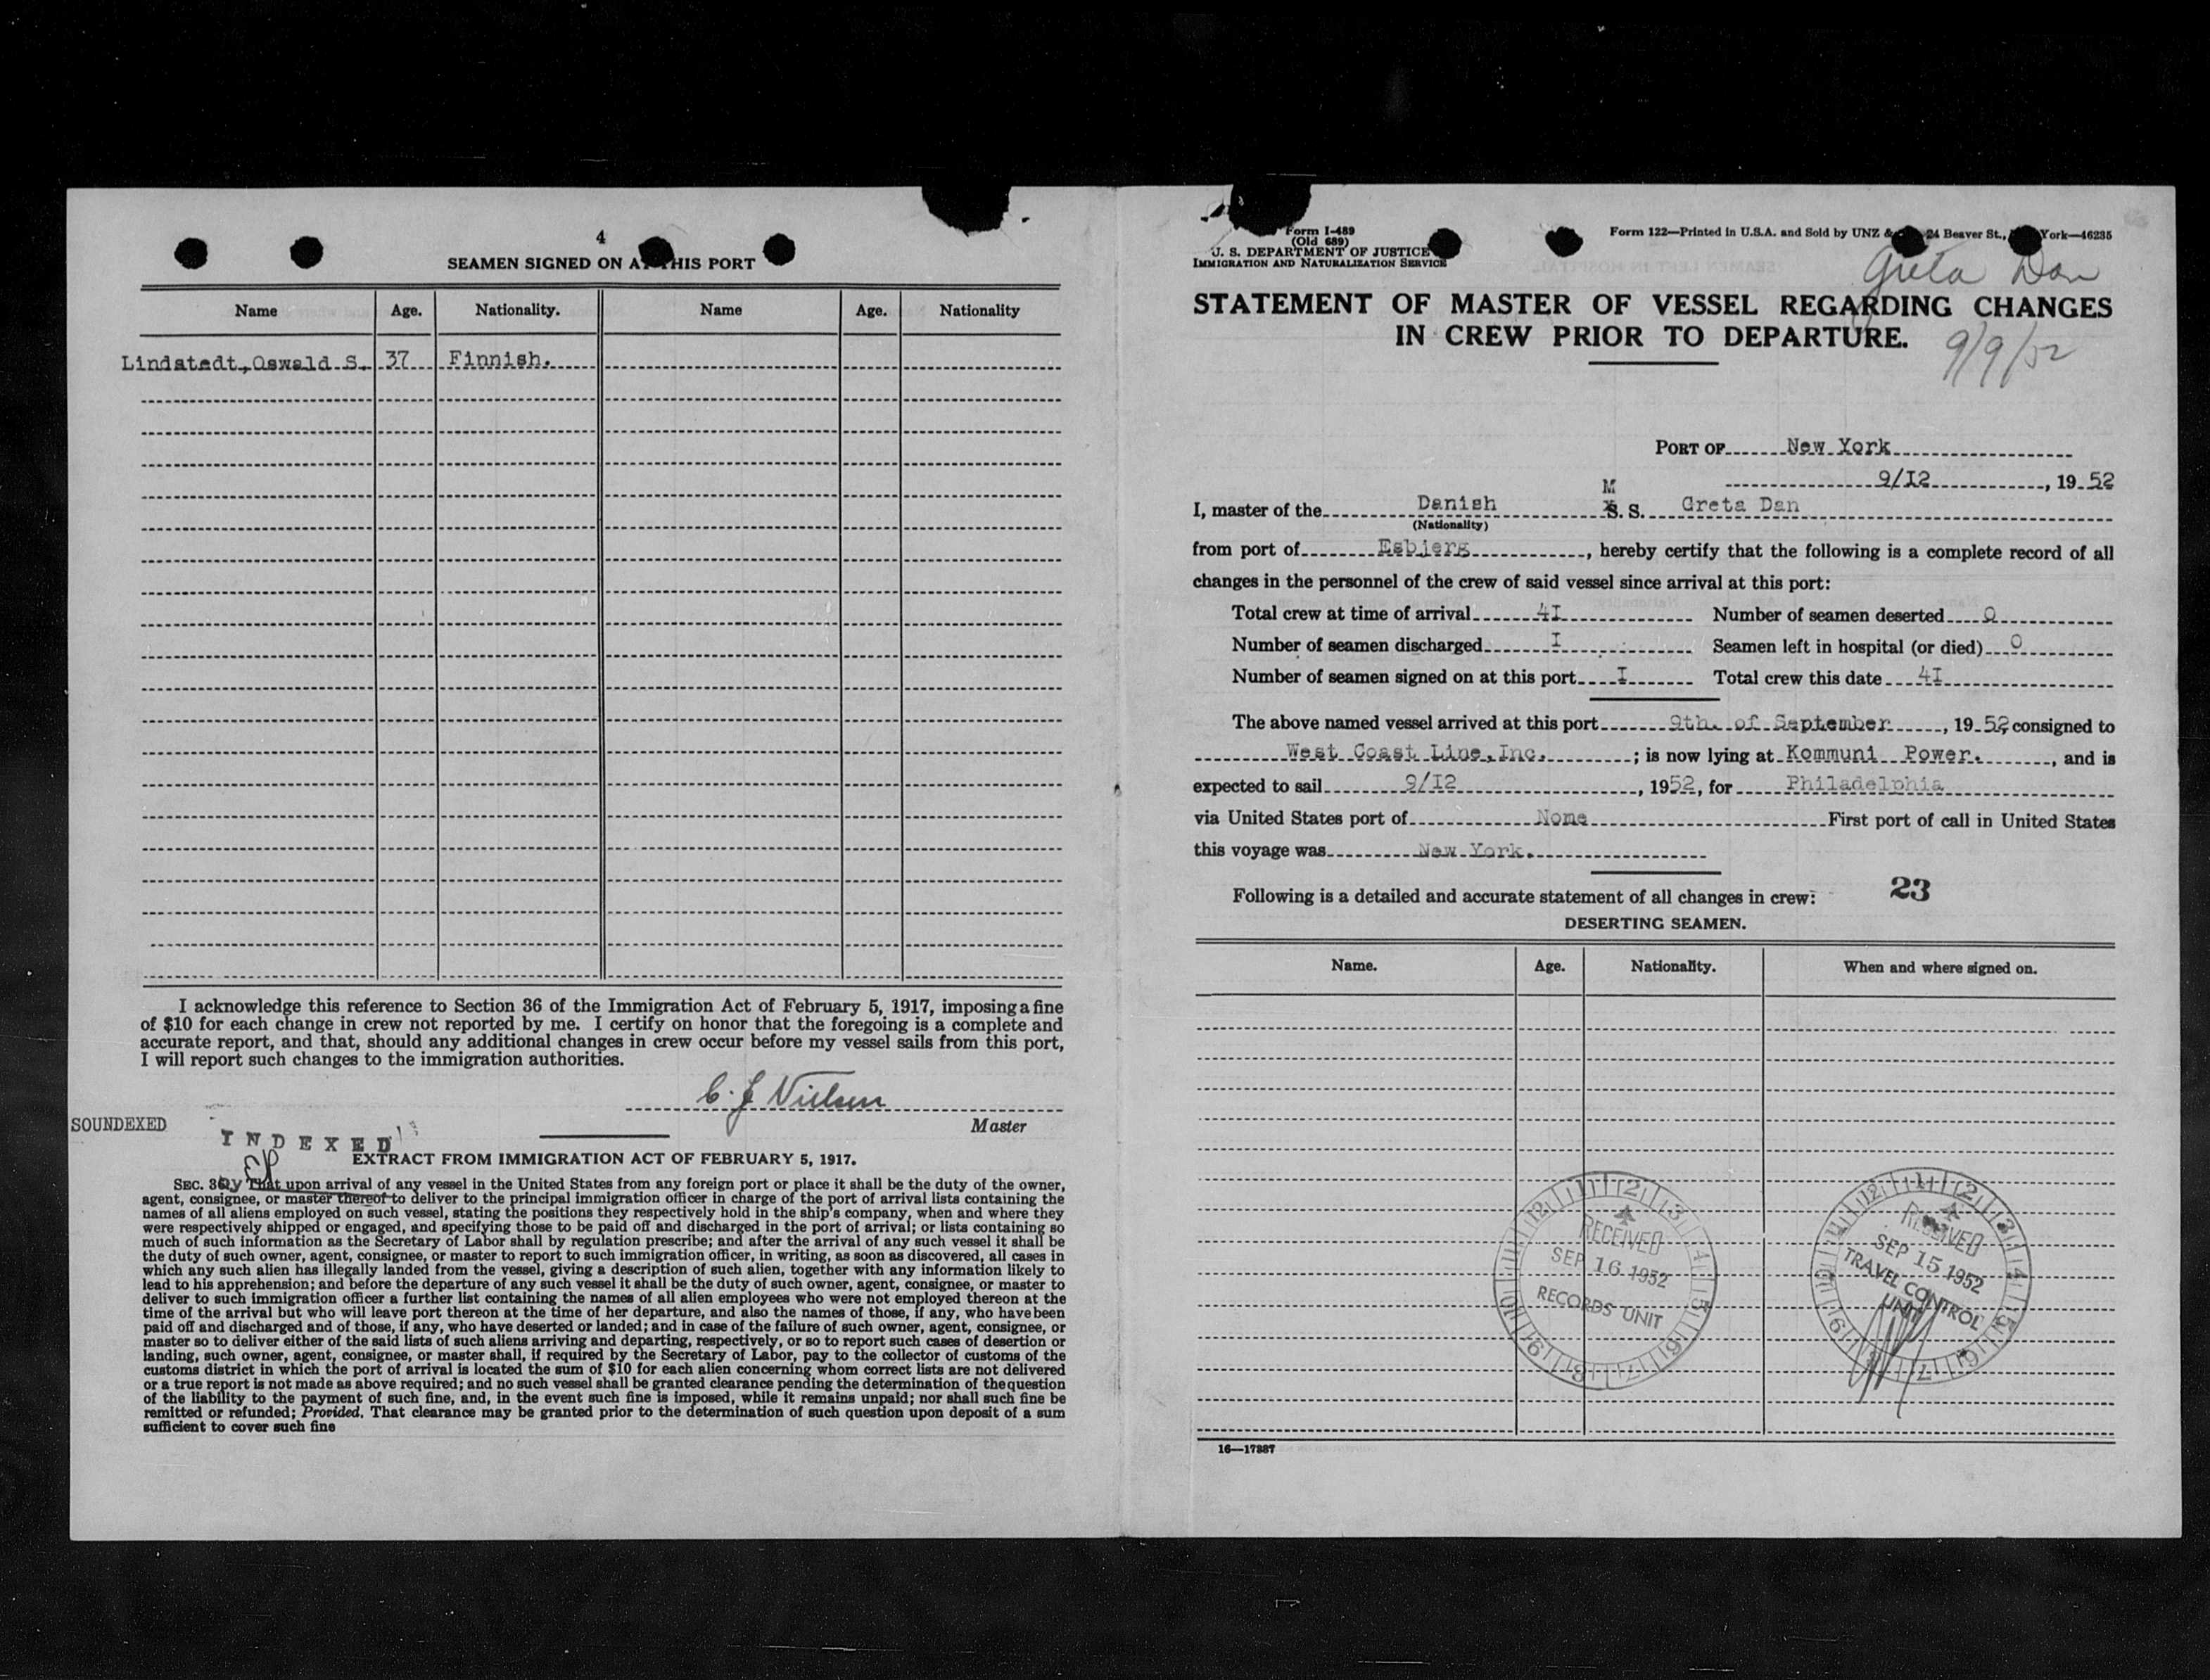 4
SEAMEN SIGNED ON AT THIS PORT
Name Age. Nationality. Name Age. Nationality
Lindstedt,Oswald S. 37 Finnish.
I acknowledge this reference to Section 36 of the Immigration Act of February 5, 1917, imposing a fine
of $10 for each change in crew not reported by me. I certify on honor that the foregoing is a complete and
accurate report, and that, should any additional changes in crew occur before my vessel sails from this port,
I will report such changes to the immigration authorities.
C. J Nielsen
Master
SOUNDEXED
INDEXED
EXTRACT FROM IMMIGRATION ACT OF FEBRUARY 5, 1917.
SEC. 36. By That upon arrival of any vessel in the United States from any foreign port or place it shall be the duty of the owner,
agent, consignee, or master thereof to deliver to the principal immigration officer in charge of the port of arrival lists containing the
names of all aliens employed on such vessel, stating the positions they respectively hold in the ship's company, when and where they
were respectively shipped or engaged, and specifying those to be paid off and discharged in the port of arrival; or lists containing so
much of such information as the Secretary of Labor shall by regulation prescribe; and after the arrival of any such vessel it shall be
the duty of such owner, agent, consignee, or master to report to such immigration officer, in writing, as soon as discovered, all cases in
which any such alien has illegally landed from the vessel, giving a description of such alien, together with any information likely to
lead to his apprehension; and before the departure of any such vessel it shall be the duty of such owner, agent, consignee, or master to
deliver to such immigration officer a further list containing the names of all alien employees who were not employed thereon at the
time of the arrival but who will leave port thereon at the time of her departure, and also the names of those, if any, who have been
paid off and discharged and of those, if any, who have deserted or landed; and in case of the failure of such owner, agent, consignee, or
master so to deliver either of the said lists of such aliens arriving and departing, respectively, or so to report such cases of desertion or
landing, such owner, agent, consignee, or master shall, if required by the Secretary of Labor, pay to the collector of customs of the
customs district in which the port of arrival is located the sum of $10 for each alien concerning whom correct lists are not delivered
or a true report is not made as above required; and no such vessel shall be granted clearance pending the determination of the question
of the liability to the payment of such fine, and, in the event such fine is imposed, while it remains unpaid; nor shall such fine be
remitted or refunded; Provided, That clearance may be granted prior to the determination of such question upon deposit of a sum
sufficient to cover such fine
Form I-489
(Old 689)
U. S. DEPARTMENT OF JUSTICE
IMMIGRATION AND NATURALIZATION SERVICE
Form 122—Printed in U.S.A. and Sold by UNZ & 24 Beaver St., York—46235
Greta Dan
STATEMENT OF MASTER OF VESSEL REGARDING CHANGES
IN CREW PRIOR TO DEPARTURE.
9/9/52
PORT OF New York
9/I2, 19 52
I, master of the Danish M S. S. Greta Dan
(Nationality)
from port of Esbjerg, hereby certify that the following is a complete record of all
changes in the personnel of the crew of said vessel since arrival at this port:
Total crew at time of arrival 4I Number of seamen deserted 0
Number of seamen discharged I Seamen left in hospital (or died) 0
Number of seamen signed on at this port I Total crew this date 4I
The above named vessel arrived at this port 9th. of September, 19 52 consigned to
West Coast Line,Inc.; is now lying at Kommuni Power., and is
expected to sail 9/I2, 1952, for Philadelphia
via United States port of None First port of call in United States
this voyage was New York.
Following is a detailed and accurate statement of all changes in crew:
23
DESERTING SEAMEN.
Name. Age. Nationality. When and where signed on.
RECEIVED
SEP 16 1952
RECORDS UNIT
RECEIVED
SEP 15 1952
TRAVEL CONTROL
UNIT
16—17887